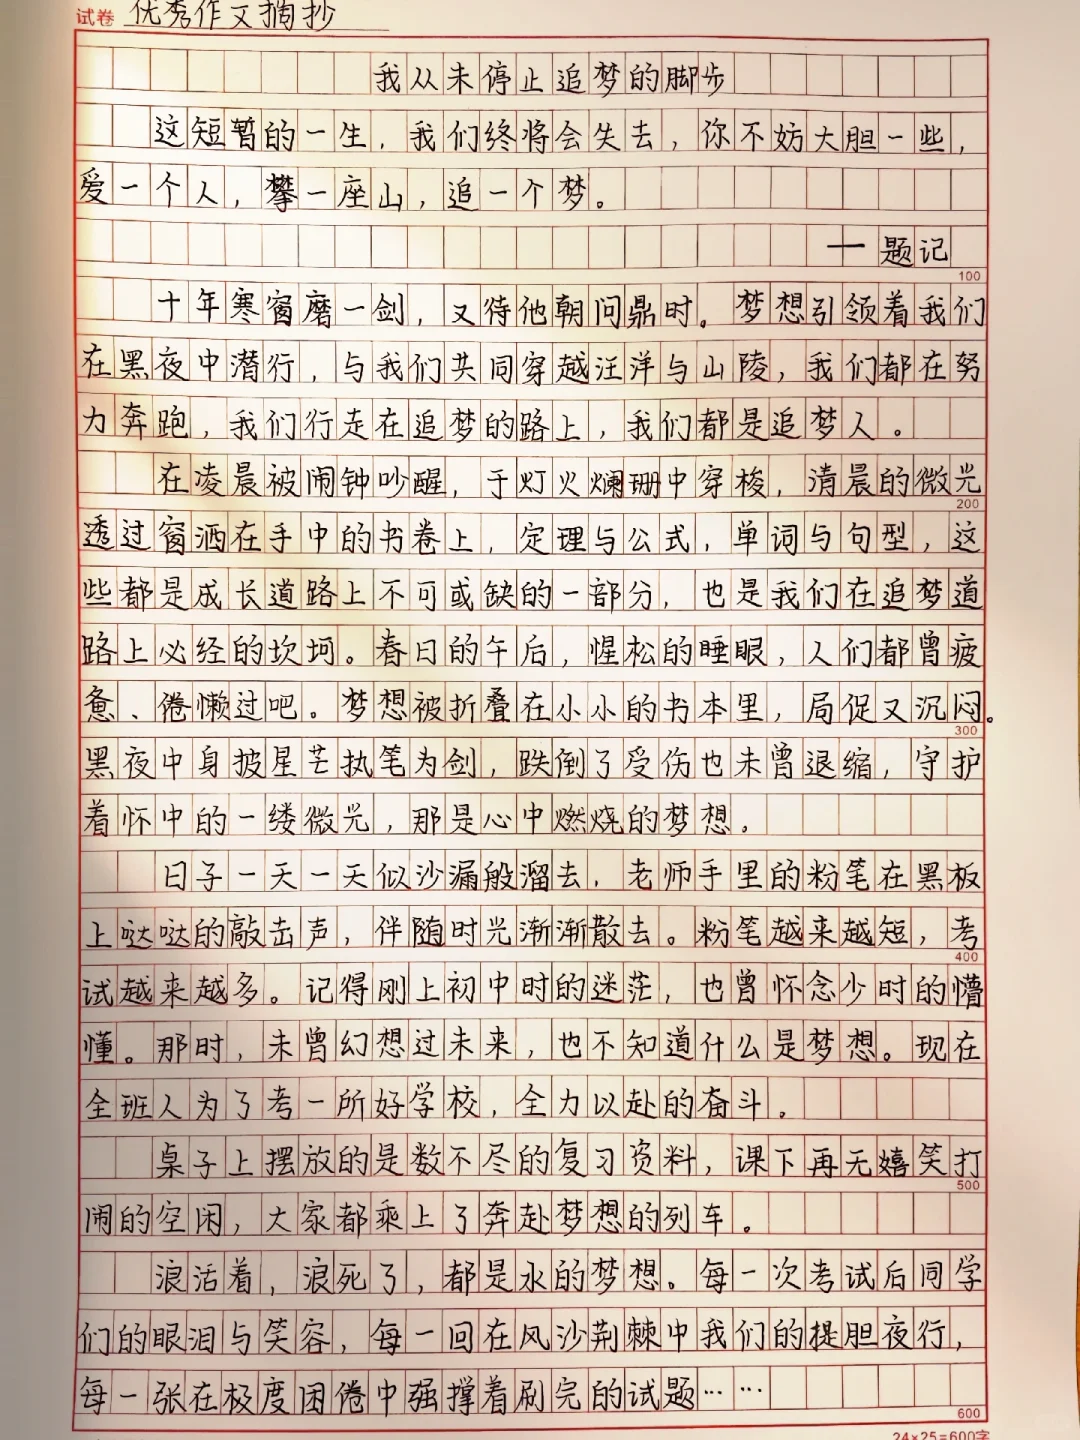 试卷 优秀作文摘抄
我从未停止追梦的脚步
这短暂的一生，我们终将会失去，你不妨大胆一些，
爱一个人，攀一座山，追一个梦。
一题记
100
十年寒窗磨一剑，又待他朝问鼎时。梦想引领着我们
在黑夜中潜行，与我们共同穿越汪洋与山陵，我们都在努
力奔跑，我们行走在追梦的路上，我们都是追梦人。
在凌晨被闹钟吵醒，于灯火斓珊中穿梭，清晨的微光
200
透过窗洒在手中的书卷上，定理与公式，单词与句型，这
些都是成长道路上不可或缺的一部分，也是我们在追梦道
路上必经的坎坷。春日的午后，惺松的睡眼，人们都曾疲
惫、倦懒过吧。梦想被折叠在小小的书本里，局促又沉闷。
300
黑夜中身披星芒执笔为剑，跌倒了受伤也未曾退缩，守护
着怀中的一缕微光，那是心中燃烧的梦想。
日子一天一天似沙漏般溜去，老师手里的粉笔在黑板
上哒哒的敲击声，伴随时光渐渐散去。粉笔越来越短，考
400
试越来越多。记得刚上初中时的迷茫，也曾怀念少时的懵
懂。那时，未曾幻想过未来，也不知道什么是梦想。现在
全班人为了考一所好学校，全力以赴的奋斗。
桌子上摆放的是数不尽的复习资料，课下再无嬉笑打
500
闹的空闲，大家都乘上了奔赴梦想的列车。
浪活着，浪死了，都是水的梦想。每一次考试后同学
们的眼泪与笑容，每一回在风沙荆棘中我们的提胆夜行，
每一张在极度困倦中强撑着刷完的试题……
600
24×25=600字